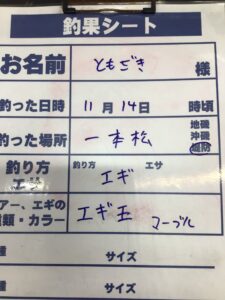 釣果シート
お名前 ともぞき 様
釣った日時 11月14日 時頃
釣った場所 一本松 地磯 沖磯 堤防
釣り方 釣り方 エサ
エギ エギ
アー、エギの エギ王 マーブル
種類・カラー
種 サイズ
サイズ